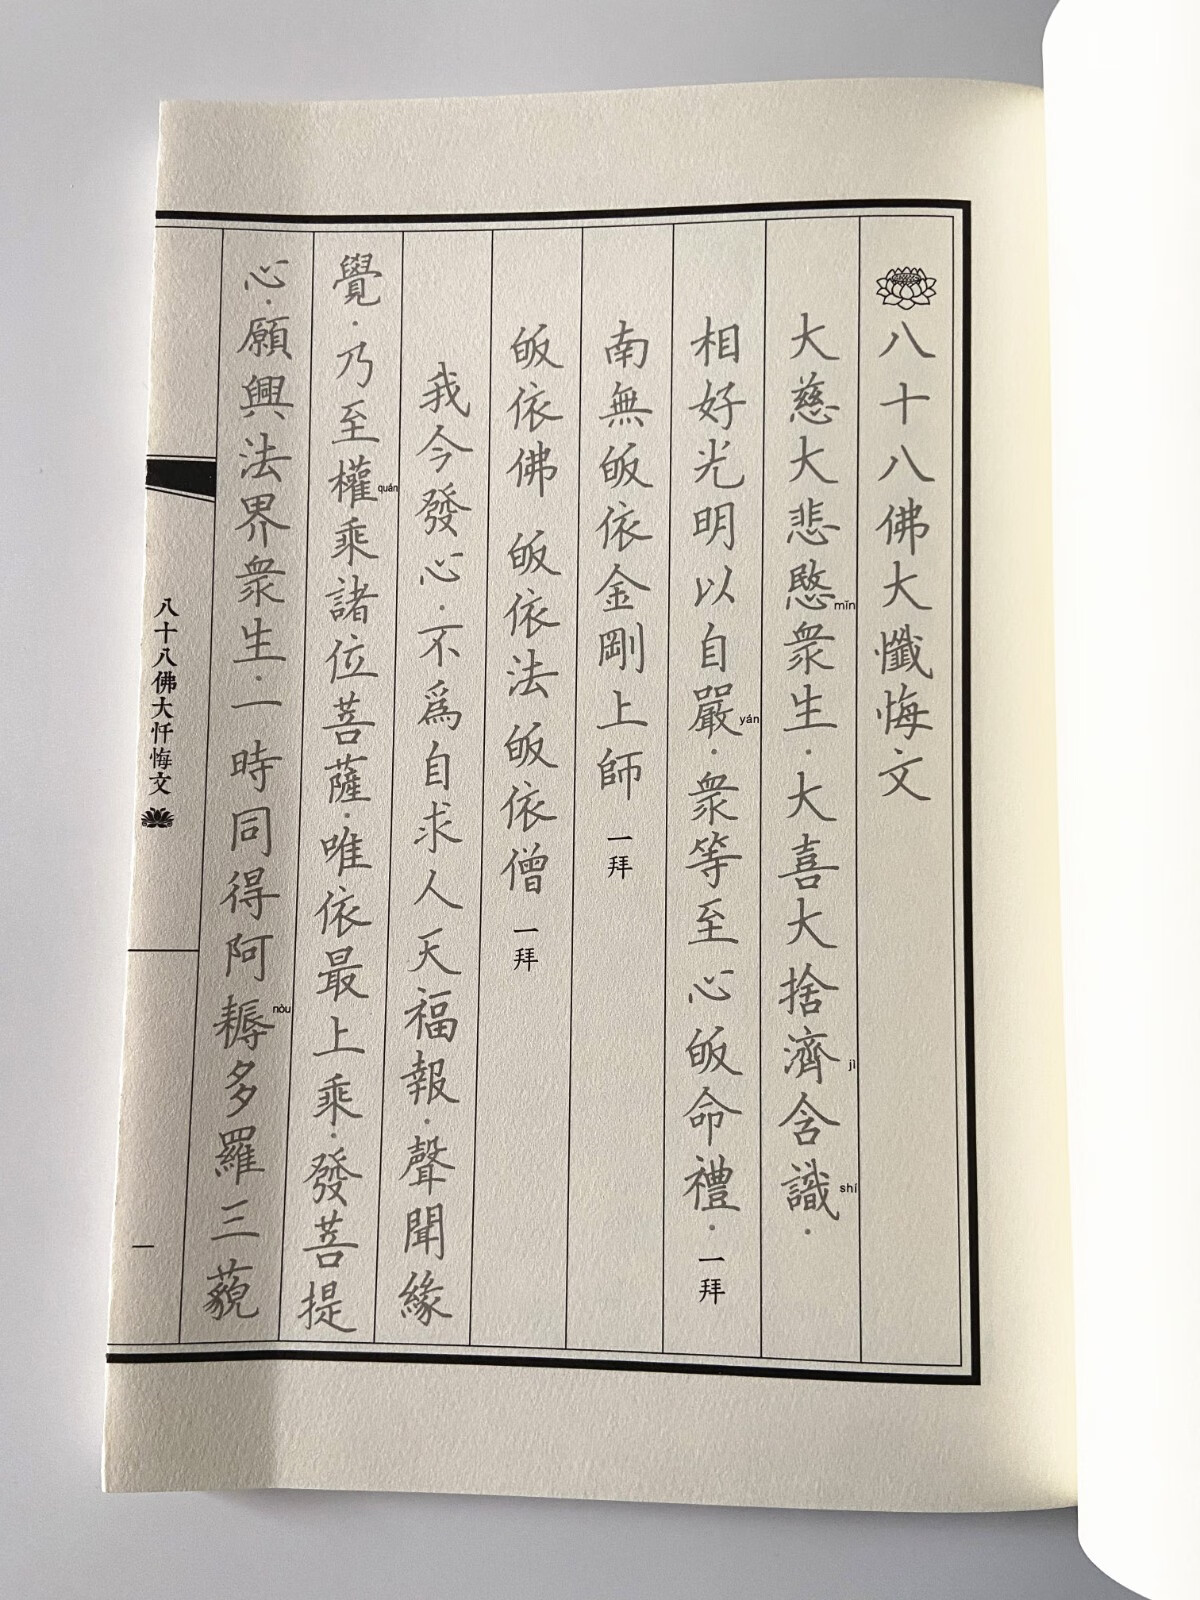 八十八佛大懺悔文
大慈大悲愍衆生·大喜大捨濟含識·
mǐn
jì
shí
相好光明以自嚴·衆等至心皈命禮·一拜
yán
南無皈依金剛上師 一拜
皈依佛 皈依法 皈依僧 一拜
我今發心·不爲自求人天福報·聲聞緣
覺·乃至權乘諸位菩薩·唯依最上乘·發菩提
quán
心·願興法界衆生·一時同得阿耨多羅三藐
nòu
八十八佛大忏悔文
一